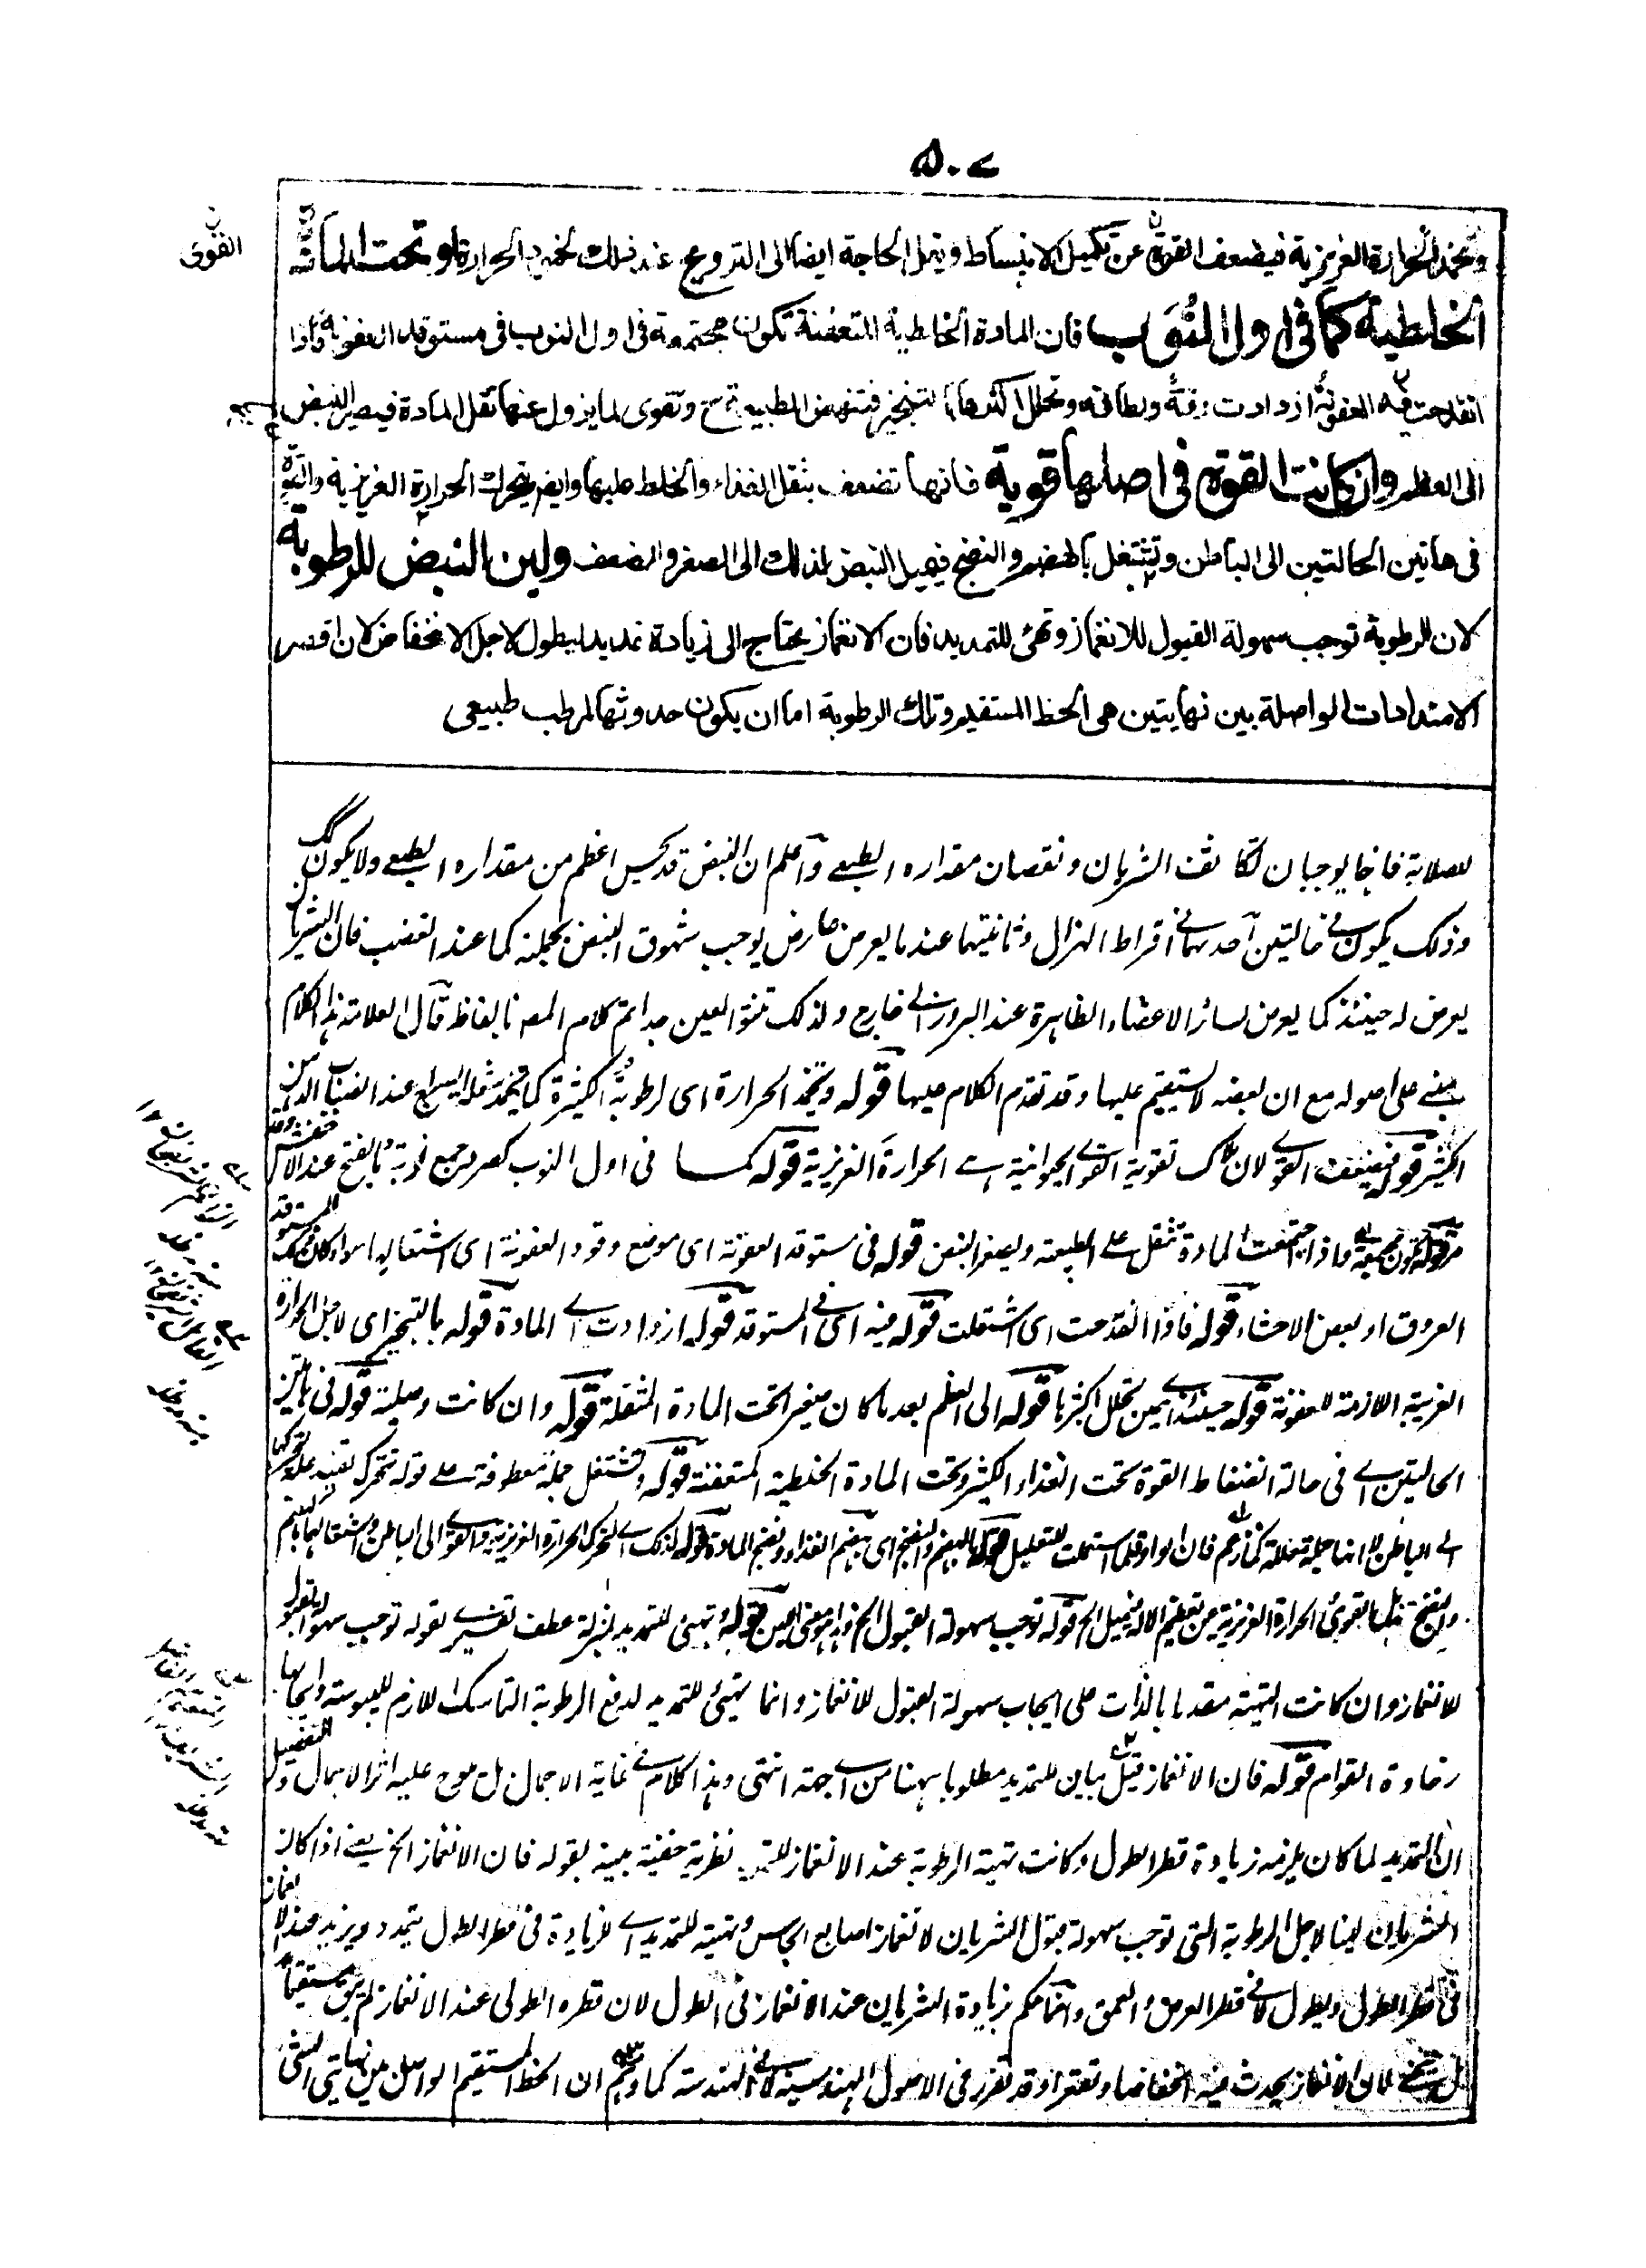 ٥٠٧
وتخمد الحرارة الغريزية فيضعف القوة عن تكميل الانبساط ويقل الحاجة ايضا الى الترويح عند ذلك لخمود الحرارة او تحت المادة
الخلطية كما فى اول النُوَب فان المادة الخلطية المتعفنة تكون مجتمعة فى اول النوب فى مستوقد العفونة فاذا
انقدحت فيه العفونة ازدادت رقة ولطافة وتحلل اكثرها بالتبخير فتنهض الطبيعة ح وتقوى لما يزول عنها ثقل المادة فيصير النبض
الى العظم وان كانت القوة فى اصلها قوية فانها تضعف بثقل الغذاء والخلط عليها وايضا يتحرك الحرارة الغريزية والقوة
القوى
فى هاتين الحالتين الى الباطن وتشتغل بالهضم والنضج فيميل النبض لذلك الى الصغر والضعف ولين النبض للرطوبة
لان الرطوبة توجب سهولة القبول للانغماز وتهئ للتمديد فان الانغماز يحتاج الى زيادة تمديد ليطول لاجل الانخفاض لان اقصر
الامتدادات الواصلة بين نهايتين هى الخط المستقيم وتلك الرطوبة اما ان يكون حدوثها لمرطب طبيعى
للصلابة فانها يوجبان تكاثف الشريان ونقصان مقداره الطبيعى واعلم ان النبض قد يحس اعظم من مقداره الطبيعى ولا يكون كذلك
وذلك يكون فى حالتين احدهما فى افراط الهزال وثانيتهما عند ما يعرض عارض يوجب شهوق النبض بجملته كما عند الغضب فان الشريان
يعرض له حينئذ كما يعرض لسائر الاعضاء الظاهرة عند البروز الى خارج ولذلك تنتو العين جدا تم كلام المصنف بالفاظه قال العلامة هذا الكلام
مبنى على اصوله مع ان بعضه لا يستقيم عليها وقد تقدم الكلام عليها قوله وتخمد الحرارة اى لرطوبته الكثيرة كما يخمد شعلة السراج عند انصباب الدهن
الكثير قوله فيضعف القوى لان ملاك تقوية القوى الحيوانية هى الحرارة الغريزية قوله كما فى اول النوب كصرد جمع نوبة بالفتح عند
قوله تكون مجتمعة واذا اجتمعت المادة تثقل على الطبيعة ويصغر النبض قوله فى مستوقد العفونة اى موضع وقود العفونة اى اشتعالها سواء كان
العروق او بعض الاحشاء قوله فاذا انقدحت اى اشتعلت قوله فيه اى فى المستوقد قوله ازدادت اى المادة قوله بالتبخير اى لاجل الحرارة
الغريبة اللازمة للعفونة قوله حينئذ اى حين تحلل اكثرها قوله الى العظم بعد ما كان صغيرا تحت المادة المثقلة قوله وان كانت وصلية قوله فى هاتين
الحالتين اى فى حالة انضغاط القوة تحت الغذاء الكثير وتحت المادة الخلطية المتعفنة قوله وتشتغل جملة معطوفة على قوله تتحرك
الى الباطن لا انها جملة معللة كما زعم فان الواو قلما استعملت للتعليل قوله بالهضم والنضج اى بهضم الغذاء ونضج المادة قوله لذلك اى لتحرك الحرارة الغريزية والقوى الى الباطن واشتغالهما بالهضم
والنضج قوله توجب سهولة القبول الخ قوله وتهيئ للتمديد بمنزلة عطف تفسيرى لقوله توجب سهولة القبول
للانغماز وان كانت التهيئة مقدما بالذات على ايجاب سهولة القبول للانغماز وانما تهيئ للتمديد لدفع الرطوبة التماسك اللازم لليبوسة وايجابها
رخاوة القوام قوله فان الانغماز قيل بيان للتمديد مطلوبا ههنا من اى جهة انتهى وهذا كلام فى غاية الاجمال بل يلوح عليه اثر الاهمال والتفصيل
ان التمديد لما كان يلزمه زيادة قطر الطول وكانت تهيئة الرطوبة عند الانغماز للتمديد نظرية خفية بينه بقوله فان الانغماز الخ يعنى اذا كان
الشريان لينا لاجل الرطوبة التى توجب سهولة قبول الشريان لانغماز اصابع الجاس وتهيئه للتمديد اى للزيادة فى قطر الطول يتمدد ويزيد عند الانغماز
فى قطر الطول ويطول لا فى قطر العرض والعمق وانما حكم بزيادة الشريان عند الانغماز فى الطول لان قطره الطولى عند الانغماز لم يبق مستقيما
بل ينحنى لان الانغماز يحدث فيه انخفاضا وتقعرا وقد تقرر فى الاصول الهندسية ان الخط المستقيم الواصل بين نهايتى الشئ